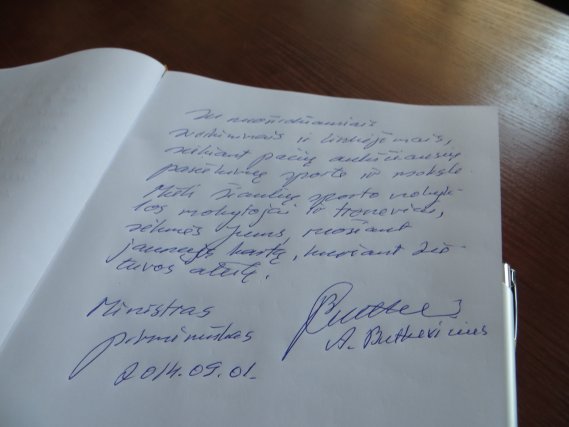 Su nuoširdžiausiais
sveikinimais ir linkėjimais,
siekiant pačių aukščiausių
pasiekimų sporto ir moksle
Mieli Šiaulių sporto mokyk-
los mokytojai ir treneriai,
sėkmės Jums, ruošiant
jaunąją kartą, kuriant Lie-
tuvos ateitį.
Ministras
pirmininkas
2014.09.01.
A. Butkevičius